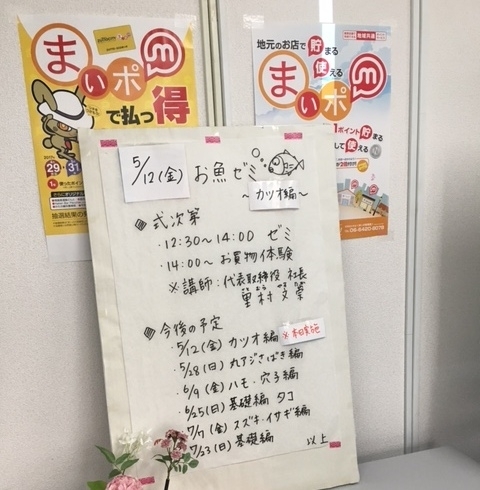 まいポ
で払っ得
29
31
地元のお店で貯まる
使える
まいポ
1ポイント貯まる
して使える
5/12(金) お魚ゼミ
～カツオ編～
式次第
・12:30～14:00 ゼミ
・14:00～ お買物体験
※講師：代表取締役 社長
里村 文崇
今後の予定
・5/12(金) カツオ編 ※本日実施
・5/28(日) 丸アジさばき編
・6/9(金) ハモ・穴子編
・6/25(日) 基礎編 タコ
・7/7(金) スズキ・イサギ編
7/23(日) 基礎編
以上